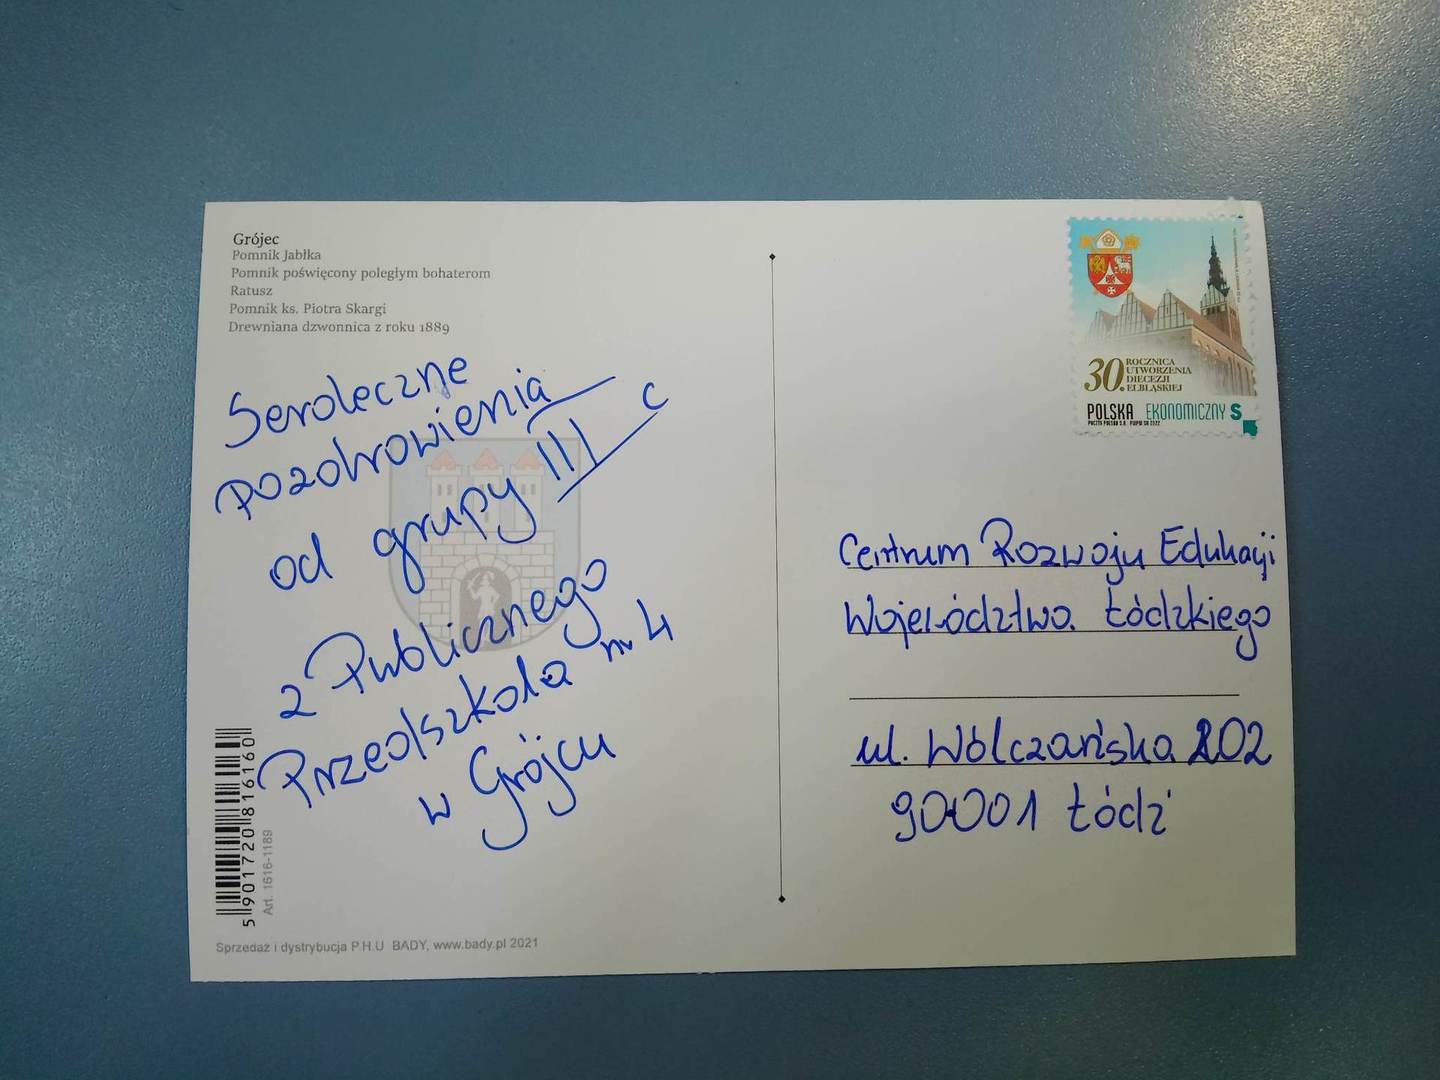 Grójec
Pomnik Jabłka
Pomnik poświęcony poległym bohaterom
Ratusz
Pomnik ks. Piotra Skargi
Drewniana dzwonnica z roku 1889
Serdeczne
pozdrowienia
od grupy III c
z Publicznego
Przedszkola nr 4
w Grójcu
5901720816160
Art. 1616-1189
Sprzedaż i dystrybucja P.H.U BADY, www.bady.pl 2021
30. ROCZNICA
UTWORZENIA
DIECEZJI
ELBLĄSKIEJ
POLSKA EKONOMICZNY S
POCZTA POLSKA S.A.
Centrum Rozwoju Edukacji
Województwa Łódzkiego
ul. Wólczańska 202
90-001 Łódź